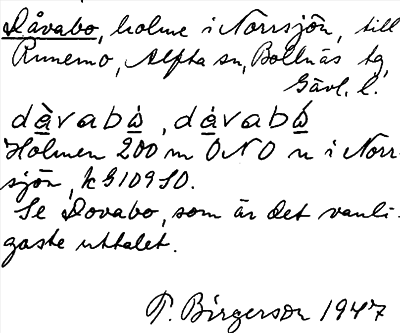 Dåvabo, holme i Norrsjön, till
Runemo, Alfta sn, Bollnäs tg,
Gävl. l.
dàvabò, dávabó
Holmen 200 m ONO n i Norr-
sjön, k G109 SO.
Se Dovabo, som är det vanli-
gaste uttalet.
T. Birgerson 1947